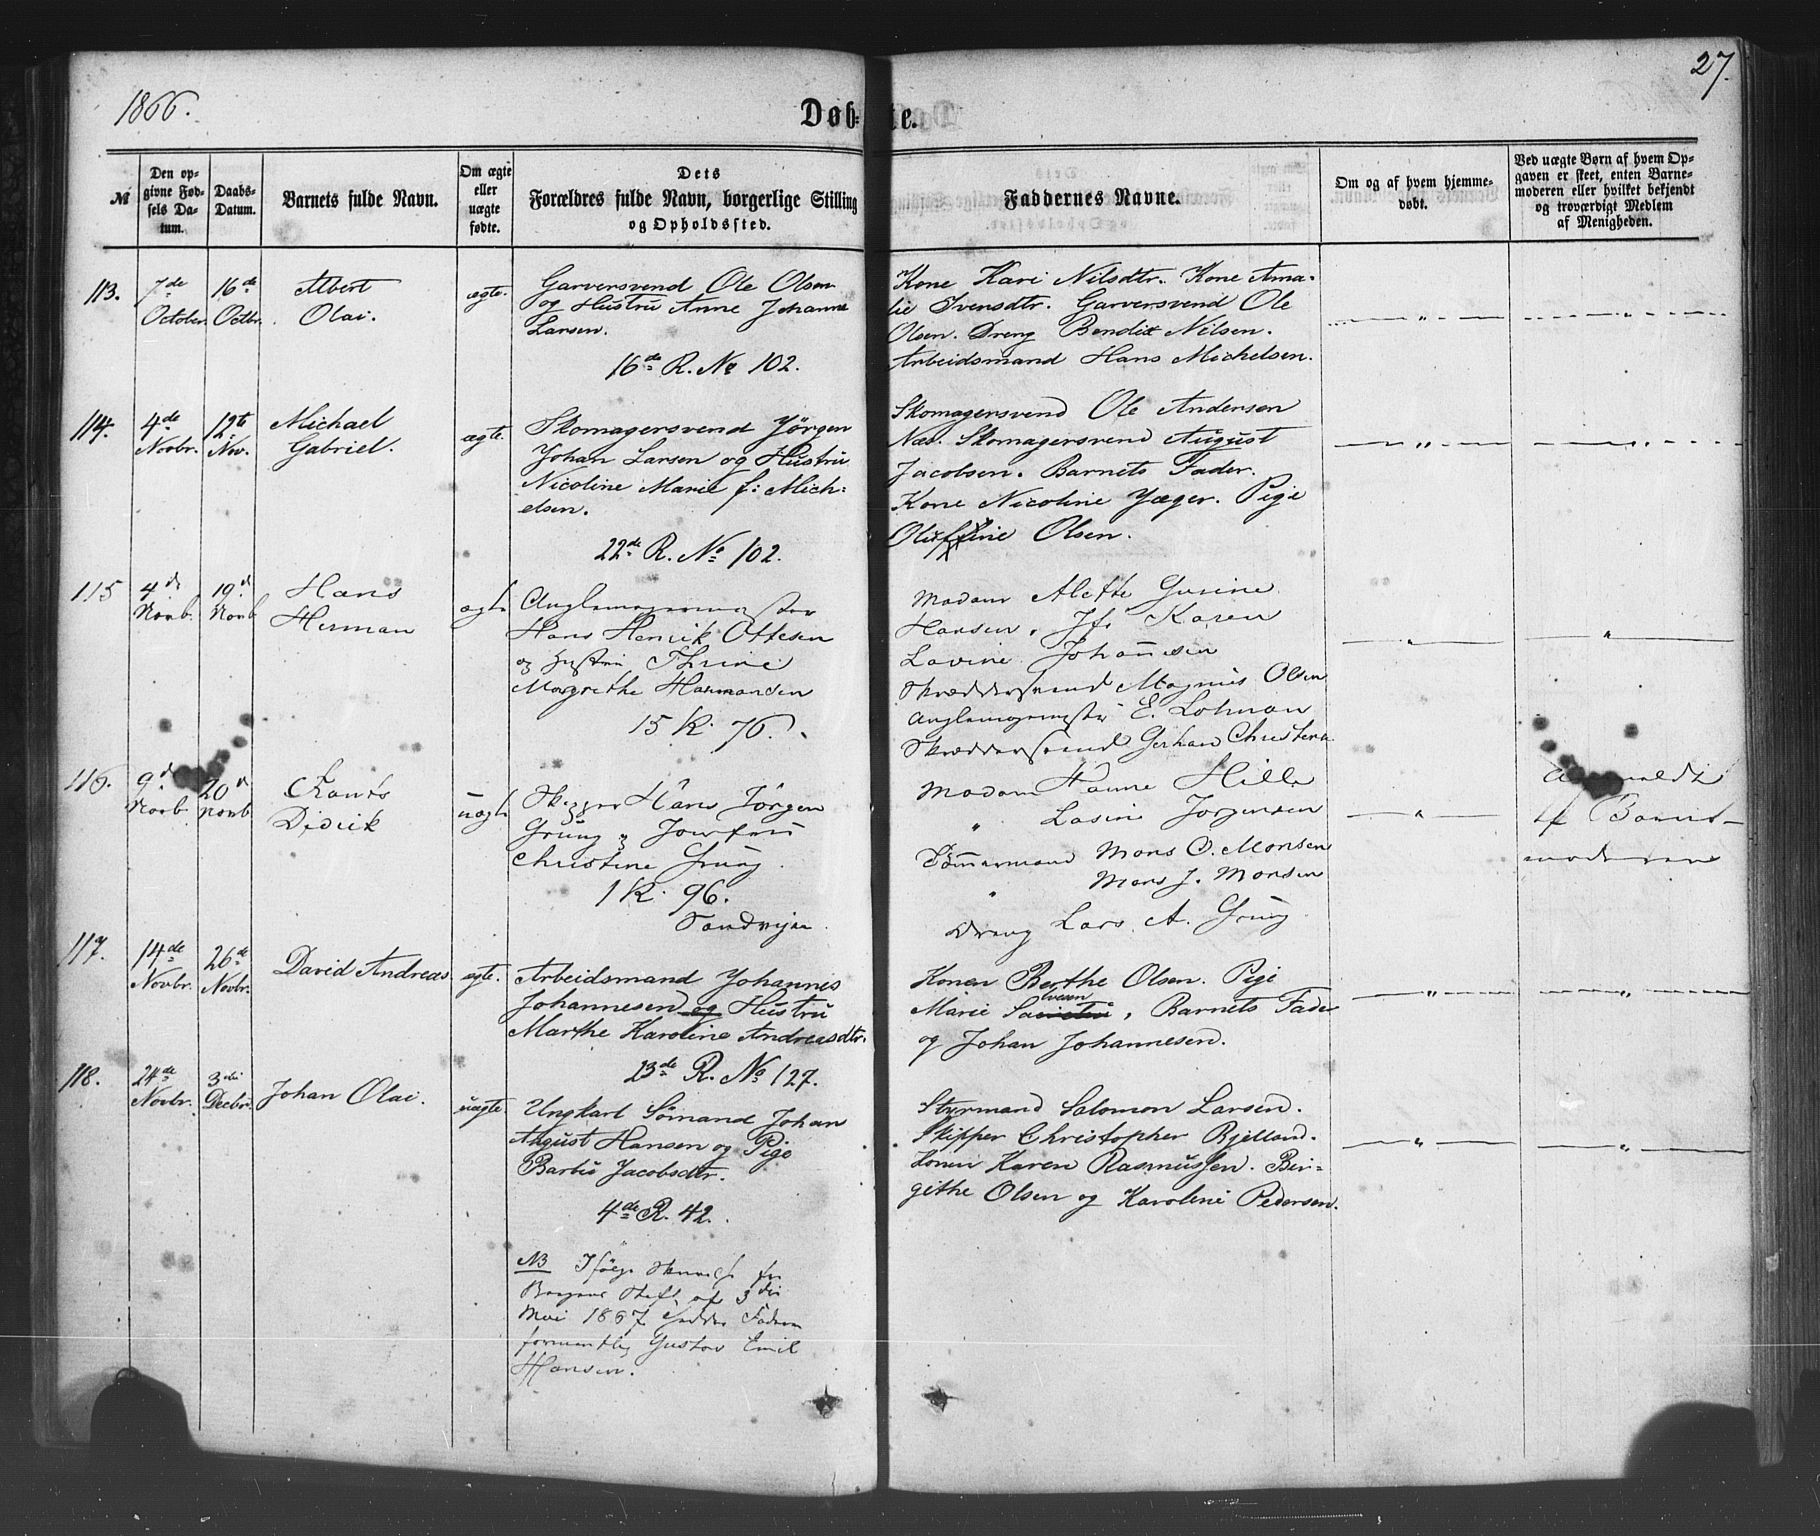 1866.
Døbte.
27.
№
Den opgivne Fødsels Datum.
Daabs-Datum.
Barnets fulde Navn.
Om ægte eller uægte fødte.
Dets Forældres fulde Navn, borgerlige Stilling og Opholdssted.
Faddernes Navne.
Om og af hvem hjemmedøbt.
Ved uægte Børn af hvem Opgaven er skeet, enten Barnemoderen eller hvilket bekjendt og troværdigt Medlem af Menigheden.
113.
7de October
16de Octbr.
Albert
Olai.
ægte.
Garversvend Ole Olsen
og Hustru Anne Johanne
Larsen.
16de R. No 102.
Kone Kari Nilsdtr. Kone Ama-
lie Ivensdtr. Garversvend Ole
Olsen. Dreng Bendix Nilsen.
Arbeidsmand Hans Michelsen.
114.
4de Novbr.
12te Nov.
Michael
Gabriel.
ægte.
Skomagersvend Jörgen
Johan Larsen og Hustru
Nicoline Marie f: Mich:
elsen.
22de R. No 102.
Skomagersvend Ole Andersen
Næs. Skomagersvend August
Jacobsen. Barnets Fader.
Kone Nicoline Jæger. Pige
Olsen.
115
4d Novb.
19d Novb
Hans
Herman
ægte
Hans Henrik Ottesen
og Hustru Thrine
Margrethe Harmansen
15 R. 76.
Madam Alette Gurine
Hansen. Jf. Karen
Lavine Johannesen
Skræddersvend Magnus Olsen
E. Lohman
Skræddersvend Gerhard
116.
9d Novb
20d Novb
Didrik
uægte
Skipper Hans Jörgen
Grung & Jomfru
Christine Grung.
1 R. 96.
Sandvigen
Madam Hanne Hille
" Lasine Jorgensen
Tömmermand Mons O. Monsen
" Mons J. Monsen
Dreng Lars A. Grung
Anmeldt
af Barne-
moderen
117.
14de Novbr.
26de Novbr.
David Andreas
ægte.
Arbeidsmand Johannes
Johannesen og Hustru
Marthe Karoline Andreasdtr.
23de R. No 127.
Konen Berthe Olsen. Pige
Marie Barnets Fader
og Johan Johannesen.
118.
24de Novbr.
3die Decbr.
Johan Olai.
uægte.
Ungkarl Sömand Johan
August Hansen og Pige
Barbro Jacobsdtr.
4de R. 42.
Styrmand Salomon Larsen.
Skipper Christopher Bjelland.
Konen Karen Rasmussen. Bir-
githe Olsen og Karoline Pedersen.
NB Ifölge Skrivelse fra
Bergens Stift af 3die
Mai 1867 hedder Faderen
formentlig Gustav Emil
Hansen.